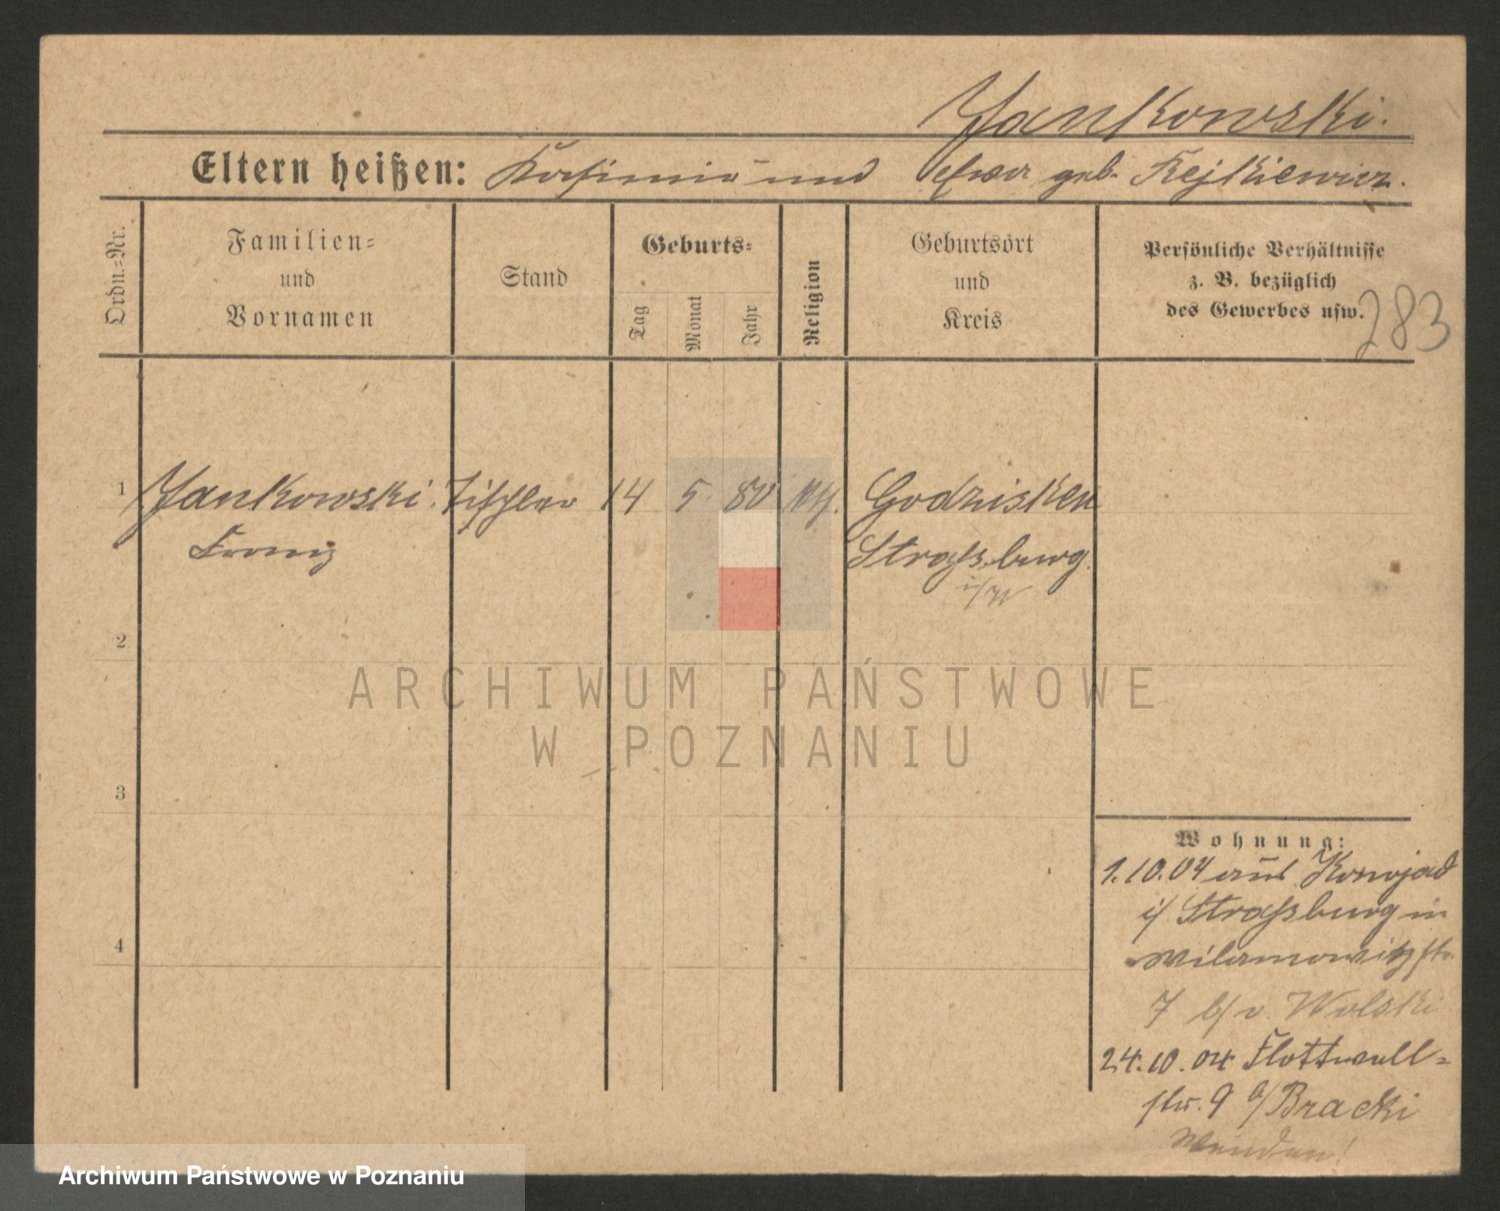 Jankowski.
Eltern heißen: Kasimir und geb. Fejkiewicz.
Ordn.-Nr.
Familien-
und
Vornamen
Stand
Geburts-
Tag
Monat
Jahr
Religion
Geburtsort
und
Kreis
Persönliche Verhältnisse
z. B. bezüglich
des Gewerbes usw.
283
1 Jankowski. Tischler 14 5 80 kth. Godzisken
Franz Straßburg
i/W
2
3
4
ARCHIWUM PAŃSTWOWE
W POZNANIU
Wohnung:
1.10.04 aus Konojad
i/ Straßburg in
Wilamowitzstr.
7 b/v. Wolski
24.10.04 Flottwell-
str. 9 b/Bracki
Wenden!
Archiwum Państwowe w Poznaniu